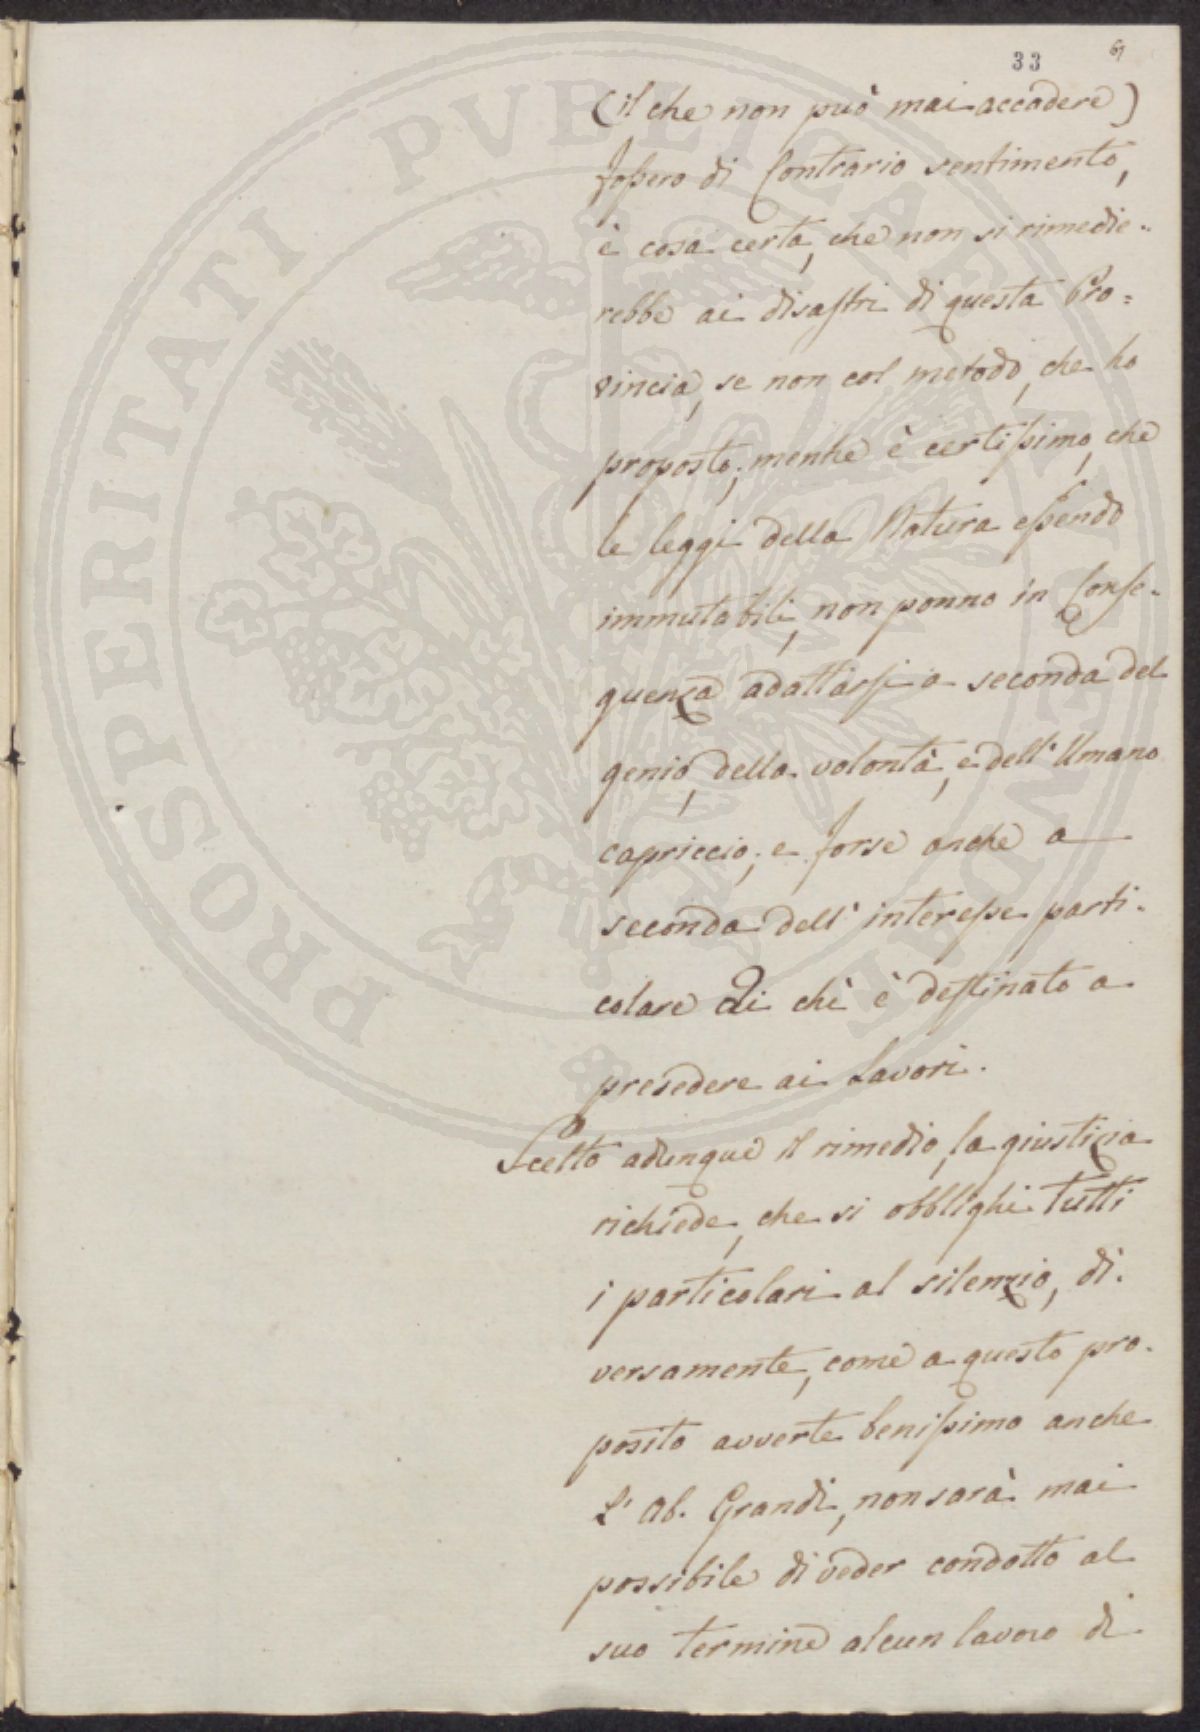 33
67
(il che non può mai accadere)
fossero di Contrario sentimento,
è cosa certa, che non si rimedie-
rebbe ai disastri di questa Pro=
vincia, se non col metodo, che ho
proposto; mentre è certissimo, che
le leggi della Natura essendo
immutabili, non ponno in Conse-
guenza adattarsi a seconda del
genio, della volontà, e dell'Umano
capriccio; e forse anche a
seconda dell'interesse parti-
colare di chi è destinato a
presedere ai Lavori.
Scelto adunque il rimedio, la giustizia
richiede, che si obblighi tutti
i particolari al silenzio, di-
versamente, come a questo pro-
posito avverte benissimo anche
L'Ab. Grandi, non sarà mai
possibile di veder condotto al
suo termine alcun lavoro di
PROSPERITATI PVBLICAE AVGENDAE